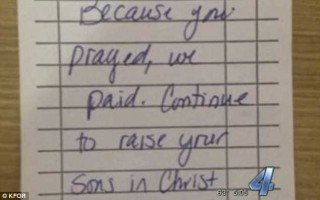 Because you
prayed, we
paid. Continue
to raise your
sons in Christ
4
© KFOR